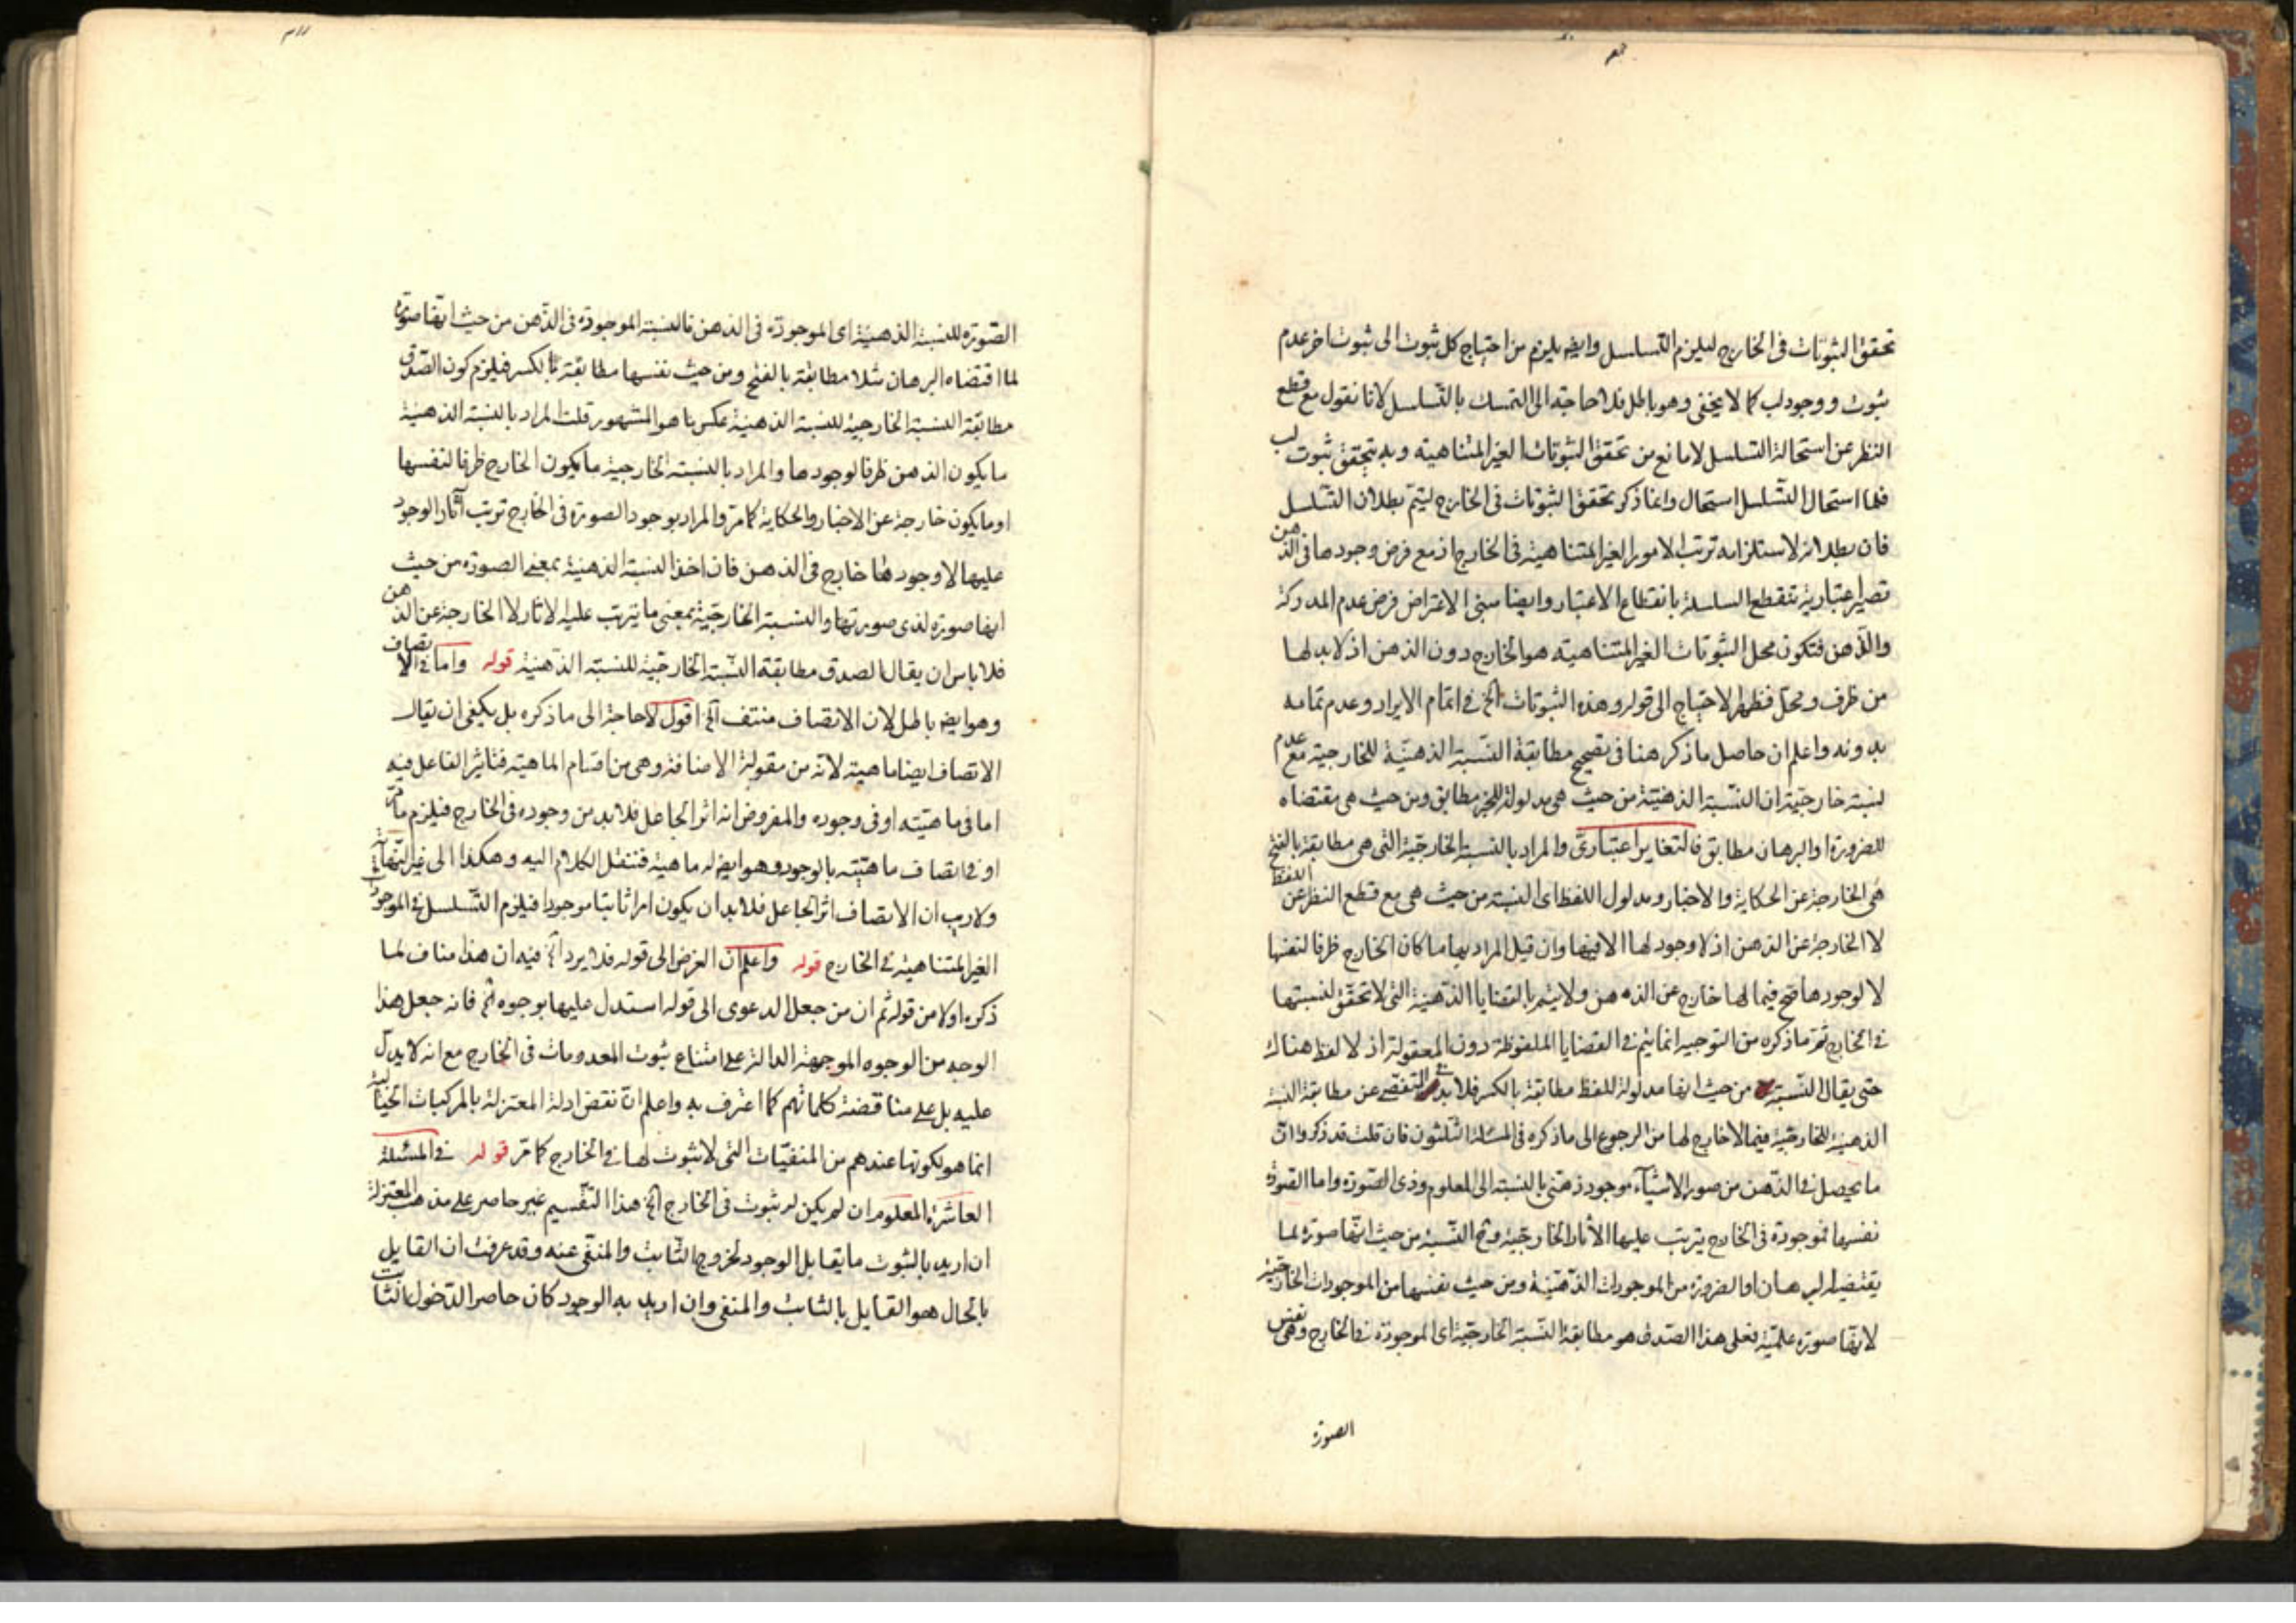 تحقق الثبوتات فى الخارج ليلزم التسلسل وايضا يلزم من احتياج كل ثبوت الى ثبوت اخر عدم
ثبوت ووجود لب كما لا يخفى وهو باطل فلا حاجة الى التمسك بالتسلسل لانا نقول مع قطع
النظر عن استحالة التسلسل لا مانع من تحقق الثبوتات الغير المتناهية وبه يتحقق ثبوت لب
فلما استحال التسلسل استحال وانما ذكر تحقق الثبوتات فى الخارج ليتم بطلان التسلسل
فان بطلانه لاستلزامه ترتب الامور الغير المتناهية فى الخارج اذ مع فرض وجودها فى الذهن
تصير اعتبارية تنقطع السلسلة بانقطاع الاعتبار وايضا مبنى الاعتراض فرض عدم المدركة
والذهن فتكون محل الثبوتات الغير المتناهية هو الخارج دون الذهن اذ لا بد لها
من ظرف ومحل فظهر الاحتياج الى قوله وهذه الثبوتات الخ فى اتمام الايراد وعدم تمامه
بدونه واعلم ان حاصل ما ذكر هنا فى تصحيح مطابقة النسبة الذهنية للخارجية مع عدم
نسبة خارجية ان النسبة الذهنية من حيث هى مدلولة للخبر مطابق ومن حيث هى مقتضاه
للضرورة او البرهان مطابق فالتغاير اعتبارى والمراد بالنسبة الخارجية التى هى مطابقة بالفتح
هى الخارجة عن الحكاية والاخبار ومدلول اللفظ اى النسبة من حيث هى مع قطع النظر عن اللفظ
لا الخارجة عن الذهن اذ لا وجود لها الا فيها وان قيل المراد بها ما كان الخارج ظرفا لنفسها
لا لوجودها فتح فيما لها خارج عن الذهن ولا يتم بالقضايا الذهنية التى لا تحقق لنسبتها
فى الخارج ثم ما ذكره من التوجيه انما يتم فى القضايا الملفوظة دون المعقولة اذ لا لفظ هناك
حتى يقال النسبة من حيث انها مدلولة للفظ مطابقة بالكسر فلا بد فى التفصى عن مطابقة النسبة
الذهنية للخارجية فيما لا خارج لها من الرجوع الى ما ذكره فى المسئلة الثلثون فان قلت قد ذكروا ان
ما يحصل فى الذهن من صور الاشياء موجود ذهنى بالنسبة الى المعلوم وذى الصورة واما الصورة
نفسها فموجودة فى الخارج يترتب عليها الآثار الخارجية وح النسبة من حيث انها صورة لما
يقتضيه البرهان او الضرورة من الموجودات الذهنية ومن حيث نفسها من الموجودات الخارجية
لانها صورة علمية فعلى هذا الصدق هو مطابقة النسبة الخارجية اى الموجودة فى الخارج وهى نفس
الصورة
الصورة للنسبة الذهنية اى الموجودة فى الذهن فالنسبة الموجودة فى الذهن من حيث انها صورة
لما اقتضاه البرهان مثلا مطابقة بالفتح ومن حيث نفسها مطابقة بالكسر فيلزم كون الصدق
مطابقة النسبة الخارجية للنسبة الذهنية عكس ما هو المشهور قلت المراد بالنسبة الذهنية
ما يكون الذهن ظرفا لوجودها والمراد بالنسبة الخارجية ما يكون الخارج ظرفا لنفسها
او ما يكون خارجة عن الاخبار والحكاية كما مر والمراد بوجود الصورة فى الخارج ترتب آثار الوجود
عليها لا وجود لها خارج فى الذهن فان اخذ النسبة الذهنية بمعنى الصورة من حيث
انها صورة لذى صورتها والنسبة الخارجية بمعنى ما يترتب عليه الآثار لا الخارجة عن الذهن
فلا باس ان يقال الصدق مطابقة النسبة الخارجية للنسبة الذهنية قوله واما فى الاتصاف
وهو ايضا باطل لان الاتصاف منتف الخ اقول لا حاجة الى ما ذكره بل يكفى ان يقال
الاتصاف ايضا ماهية لانه من مقولة الاضافة وهى من اقسام الماهية فتاثير الفاعل فيه
اما فى ماهيته او فى وجوده والمفروض انه اثر الجاعل فلا بد من وجوده فى الخارج فيلزم ما مر
او فى اتصاف ماهيته بالوجود وهو ايضا له ماهية فننقل الكلام اليه وهكذا الى غير النهاية
ولا ريب ان الاتصاف اثر الجاعل فلا بد ان يكون امرا ثابتا موجودا فيلزم التسلسل فى الموجودات
الغير المتناهية فى الخارج قوله واعلم ان الغرض الى قوله فلا يرد الخ فيه ان هذا مناف لما
ذكره اولا من قوله ثم ان من جعل الدعوى الى قوله استدل عليها بوجوه الخ فانه جعل هذا
الوجه من الوجوه الموجهة الدالة على امتناع ثبوت المعدومات فى الخارج مع انه لا يدل
عليه بل على مناقضة كلماتهم كما اعترف به واعلم ان نقض ادلة المعتزلة بالمركبات الخيالية
انما هو لكونها عندهم من المنفيات التى لا ثبوت لها فى الخارج كما مر قوله فى المسئلة
العاشرة المعلوم ان لم يكن له ثبوت فى الخارج الخ هذا التقسيم غير حاصر على مذهب المعتزلة
ان اريد بالثبوت ما يقابل الوجود لخروج الثابت والمنفى عنه وقد عرفت ان القايل
بالحال هو القايل بالثابت والمنفى وان اريد به الوجود كان حاصرا لدخول الثابت